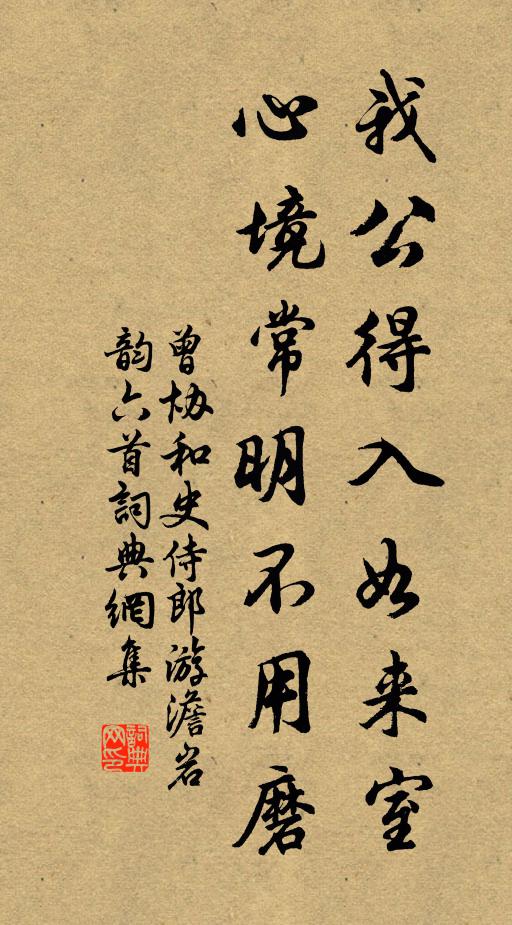 我公得入如来室
心境常明不用磨
曾協和史侍郎游澹岩
韵六首詞典網集
詞典
网印